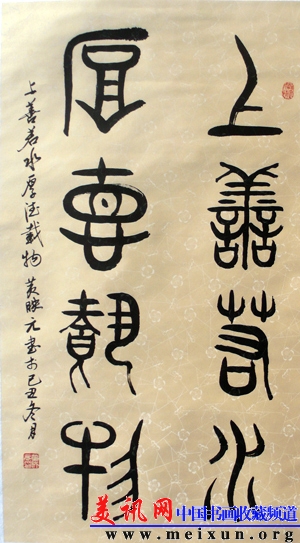 上善若水
厚德载物
上善若水厚德载物 黄晓元书于己丑冬月
美讯网 中国书画收藏频道
www.meixun.org